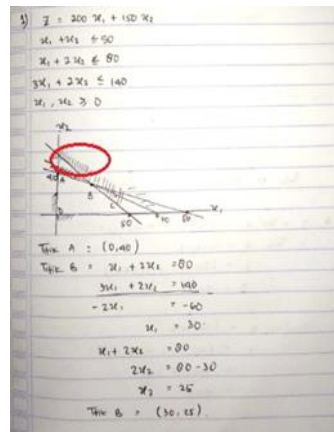 1) Z = 200 x₁ + 150 x₂
x₁ + x₂ ≤ 50
x₁ + 2x₂ ≤ 80
3x₁ + 2x₂ ≤ 140
x₁, x₂ ≥ 0
x₂
40 A
B
C
x₁
0
50
80
Titik A : (0,40)
Titik B = x₁ + 2x₂ = 80
3x₁ + 2x₂ = 140
-2x₁ = -60
x₁ = 30
x₁ + 2x₂ = 80
2x₂ = 80 - 30
x₂ = 25
Titik B = (30, 25)